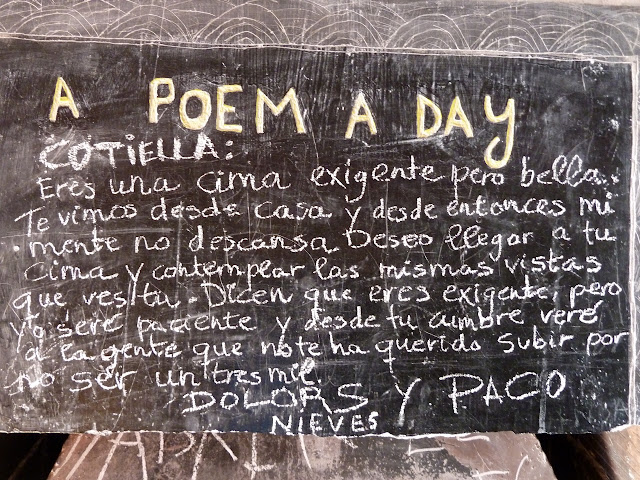 A POEM A DAY
COTIELLA:
Eres una cima exigente pero bella.
Te vimos desde casa y desde entonces mi
mente no descansa. Deseo llegar a tu
cima y contemplar las mismas vistas
que ves tu. Dicen que eres exigente, pero
yo seré paciente y desde tu cumbre veré
a la gente que no te ha querido subir por
no ser un tres mil.
DOLORS Y PACO
NIEVES